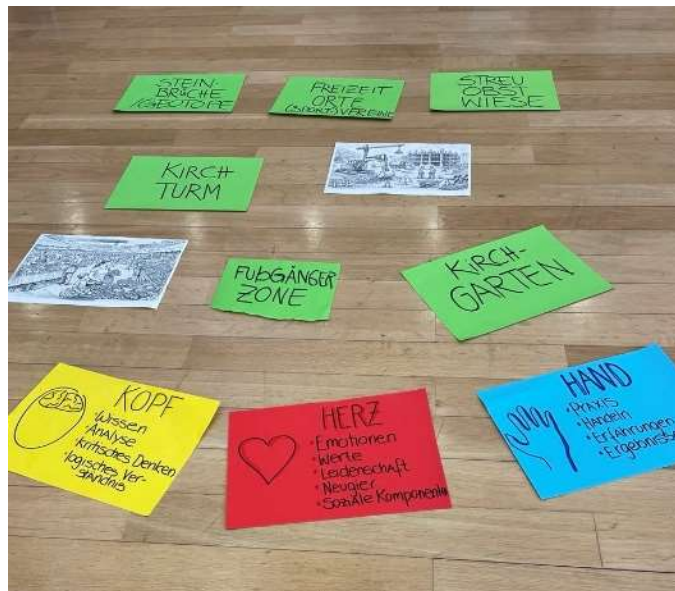 STEIN-
BRÜCHE
/GEOTOPE
FREIZEIT
ORTE
(SPORT)VEREINE
STREU
OBST
WIESE
KIRCH
TURM
FUßGÄNGER
ZONE
KIRCH-
GARTEN
KOPF
• Wissen
• Analyse
• kritisches Denken
• logisches Ver-
ständnis
HERZ
• Emotionen
• Werte
• Leidenschaft
• Neugier
• Soziale Komponenten
HAND
• PRAXIS
• Handeln
• Erfahrungen
• Ergebnisse